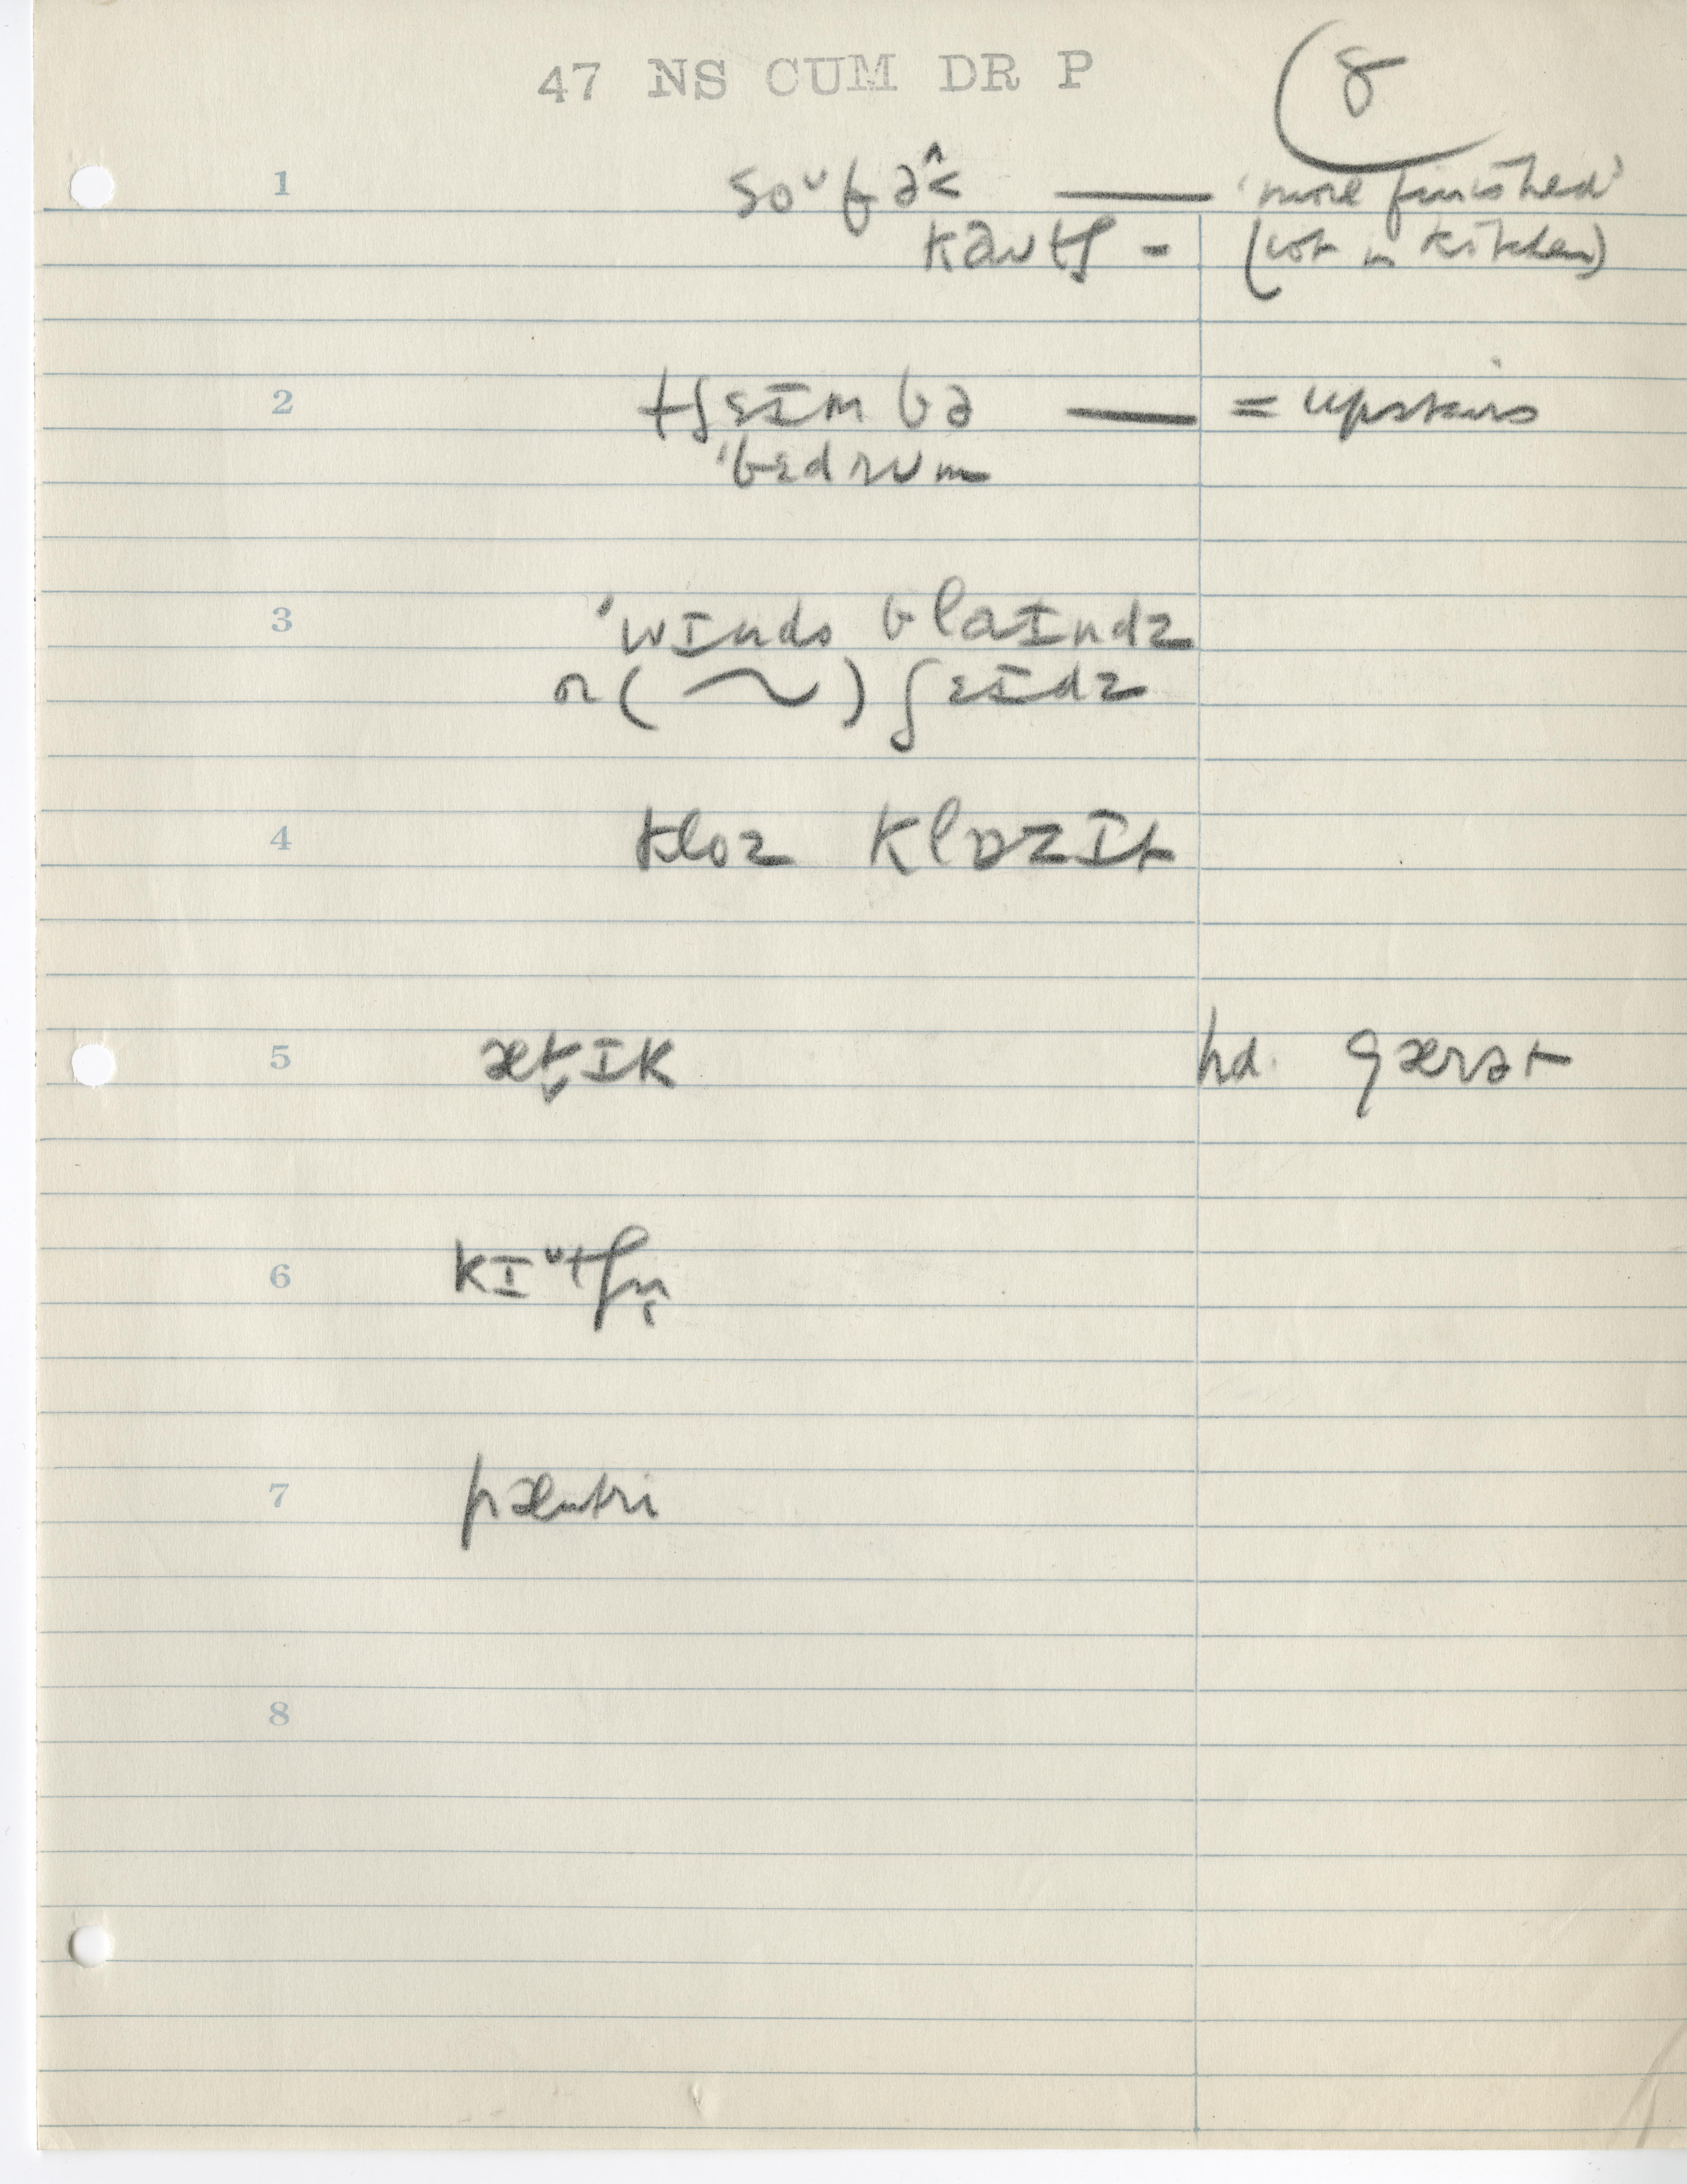 47 NS CUM DR P
8
1 so˅fə^< — 'more finished'
kaʊtʃ - (not in kitchen)
2 tʃɛɪmbə — = upstairs
'bɛdrʊm
3 'wɪndo blaɪndz
or ( ~ ) ʃɛɪdz
4 kloz klɒzɪt
5 æt̬ɪk hd. gærət
6 kɪ˅tʃn̩
7 pæntri
8